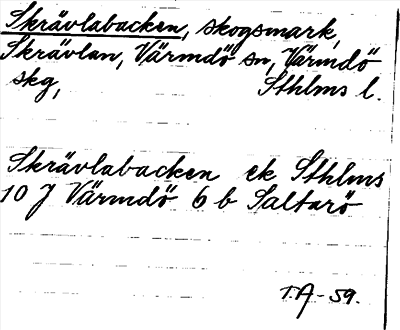 Skrävlabacken, skogsmark,
Skrävlan, Värmdö sn, Värmdö
skg, Sthlms l.
Skrävlabacken ek Sthlms
10 J Värmdö 6 b Saltarö
T.A-59.